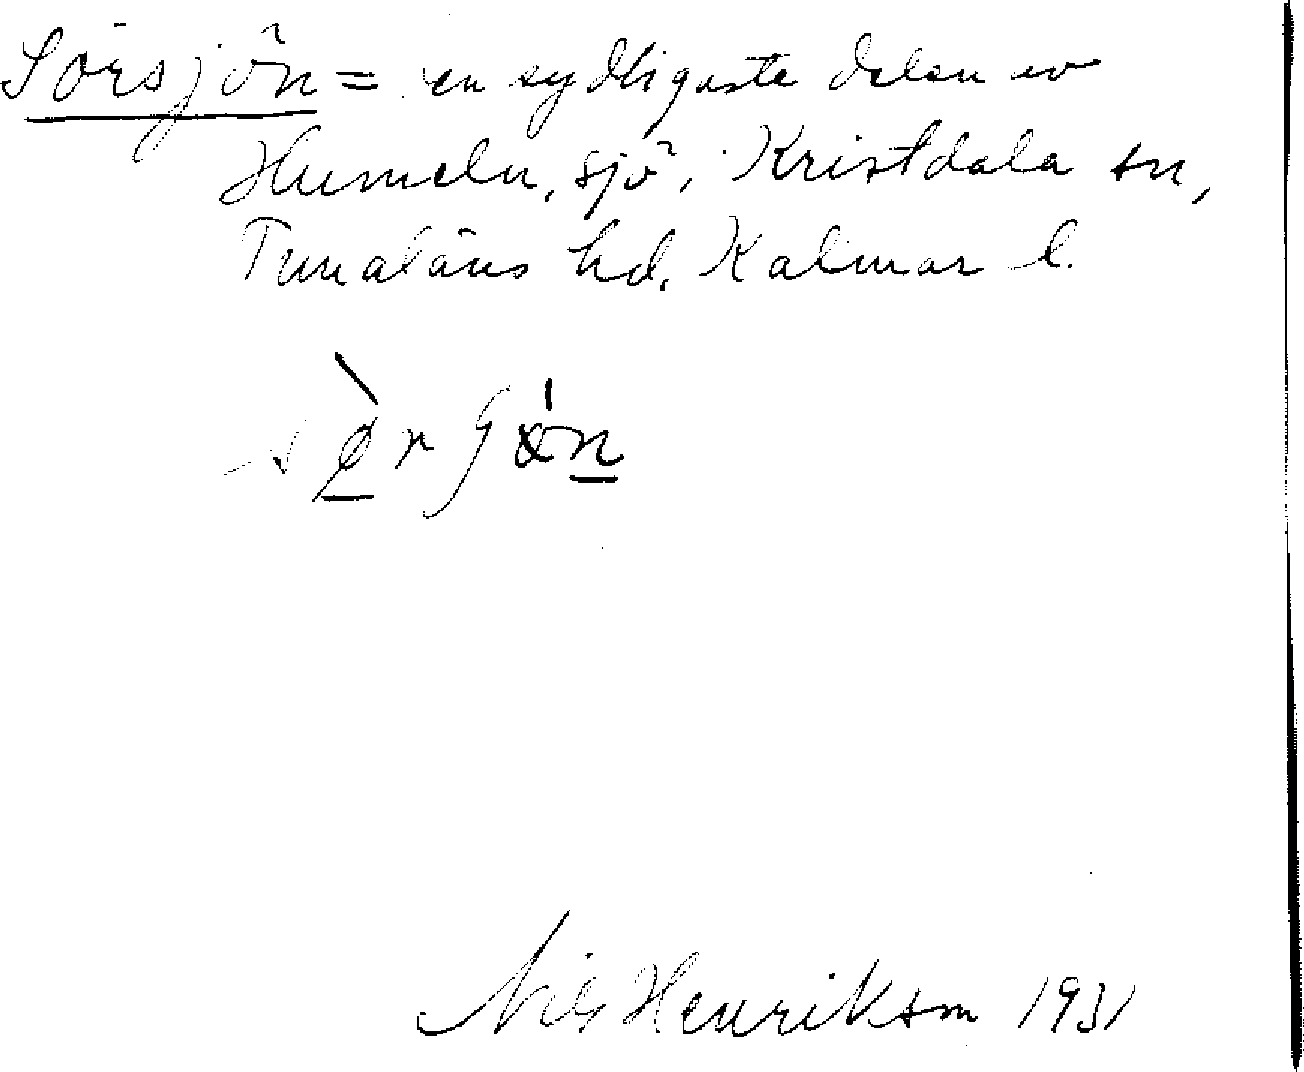 Sörsjön = en sydligaste delen av
Hummeln, sjö, Kristdala sn,
Tunaläns hd. Kalmar l.
Nils Henriksson 1931